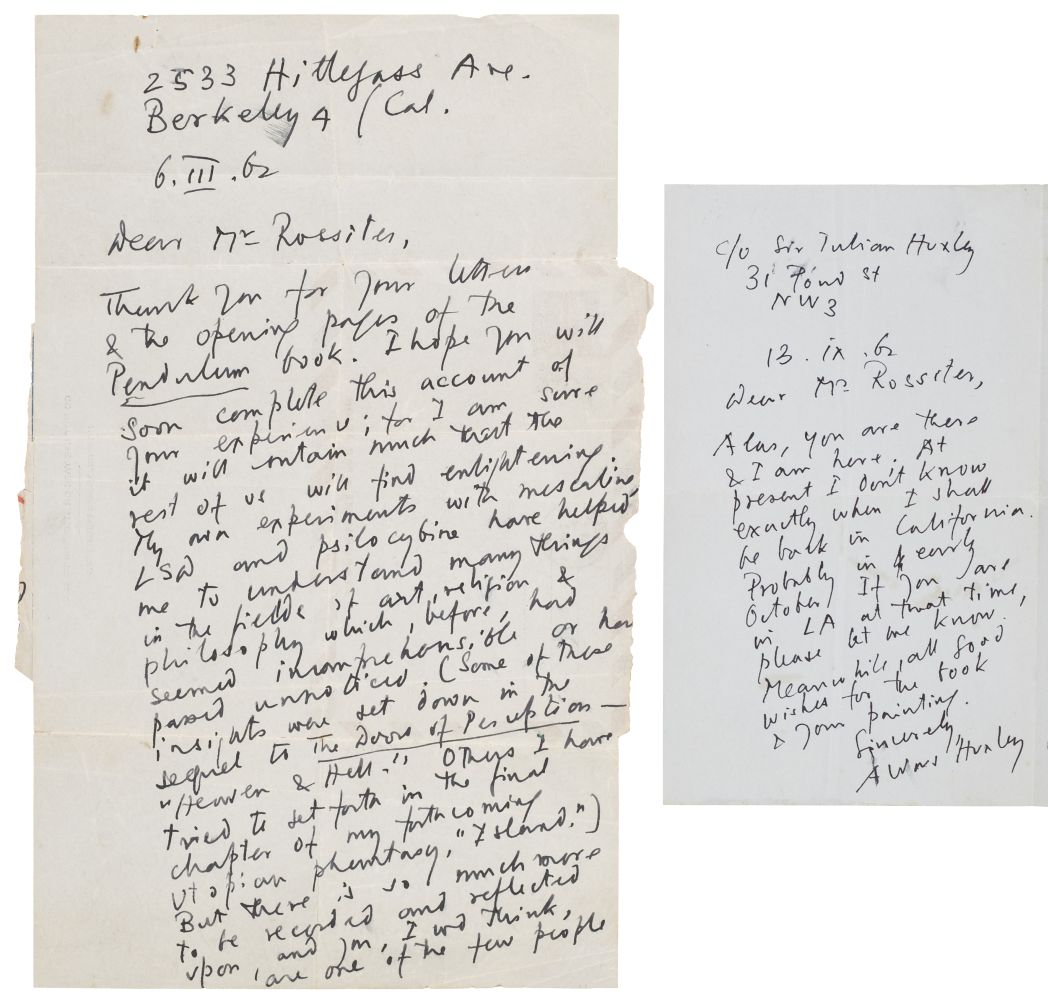 2533 Hillegass Ave.
Berkeley 4 / Cal.
6.III.62
Dear Mr Rossiter,
Thank you for your letter
& the opening pages of the
Pendulum book. I hope you will
soon complete this account of
your experiences; for I am sure
it will contain much that the
rest of us will find enlightening.
My own experiments with mescalin,
LSD and psilocybine have helped
me to understand many things
in the fields of art, religion &
philosophy which, before, had
seemed incomprehensible or had
passed unnoticed. (Some of these
insights were set down in the
sequel to The Doors of Perception —
"Heaven & Hell." Others I have
tried to set forth in the final
chapter of my forthcoming
utopian phantasy, "Island.")
But there is so much more
to be recorded and reflected
upon, and you, I wd think,
are one of the few people
c/o Sir Julian Huxley
31 Pond St
NW3
13.IX.62
Dear Mr Rossiter,
Alas, you are there
& I am here. At
present I don't know
exactly when I shall
be back in California.
Probably in early
October. If you are
in LA at that time,
please let me know.
Meanwhile, all good
wishes for the book
& your painting.
Sincerely,
Aldous Huxley